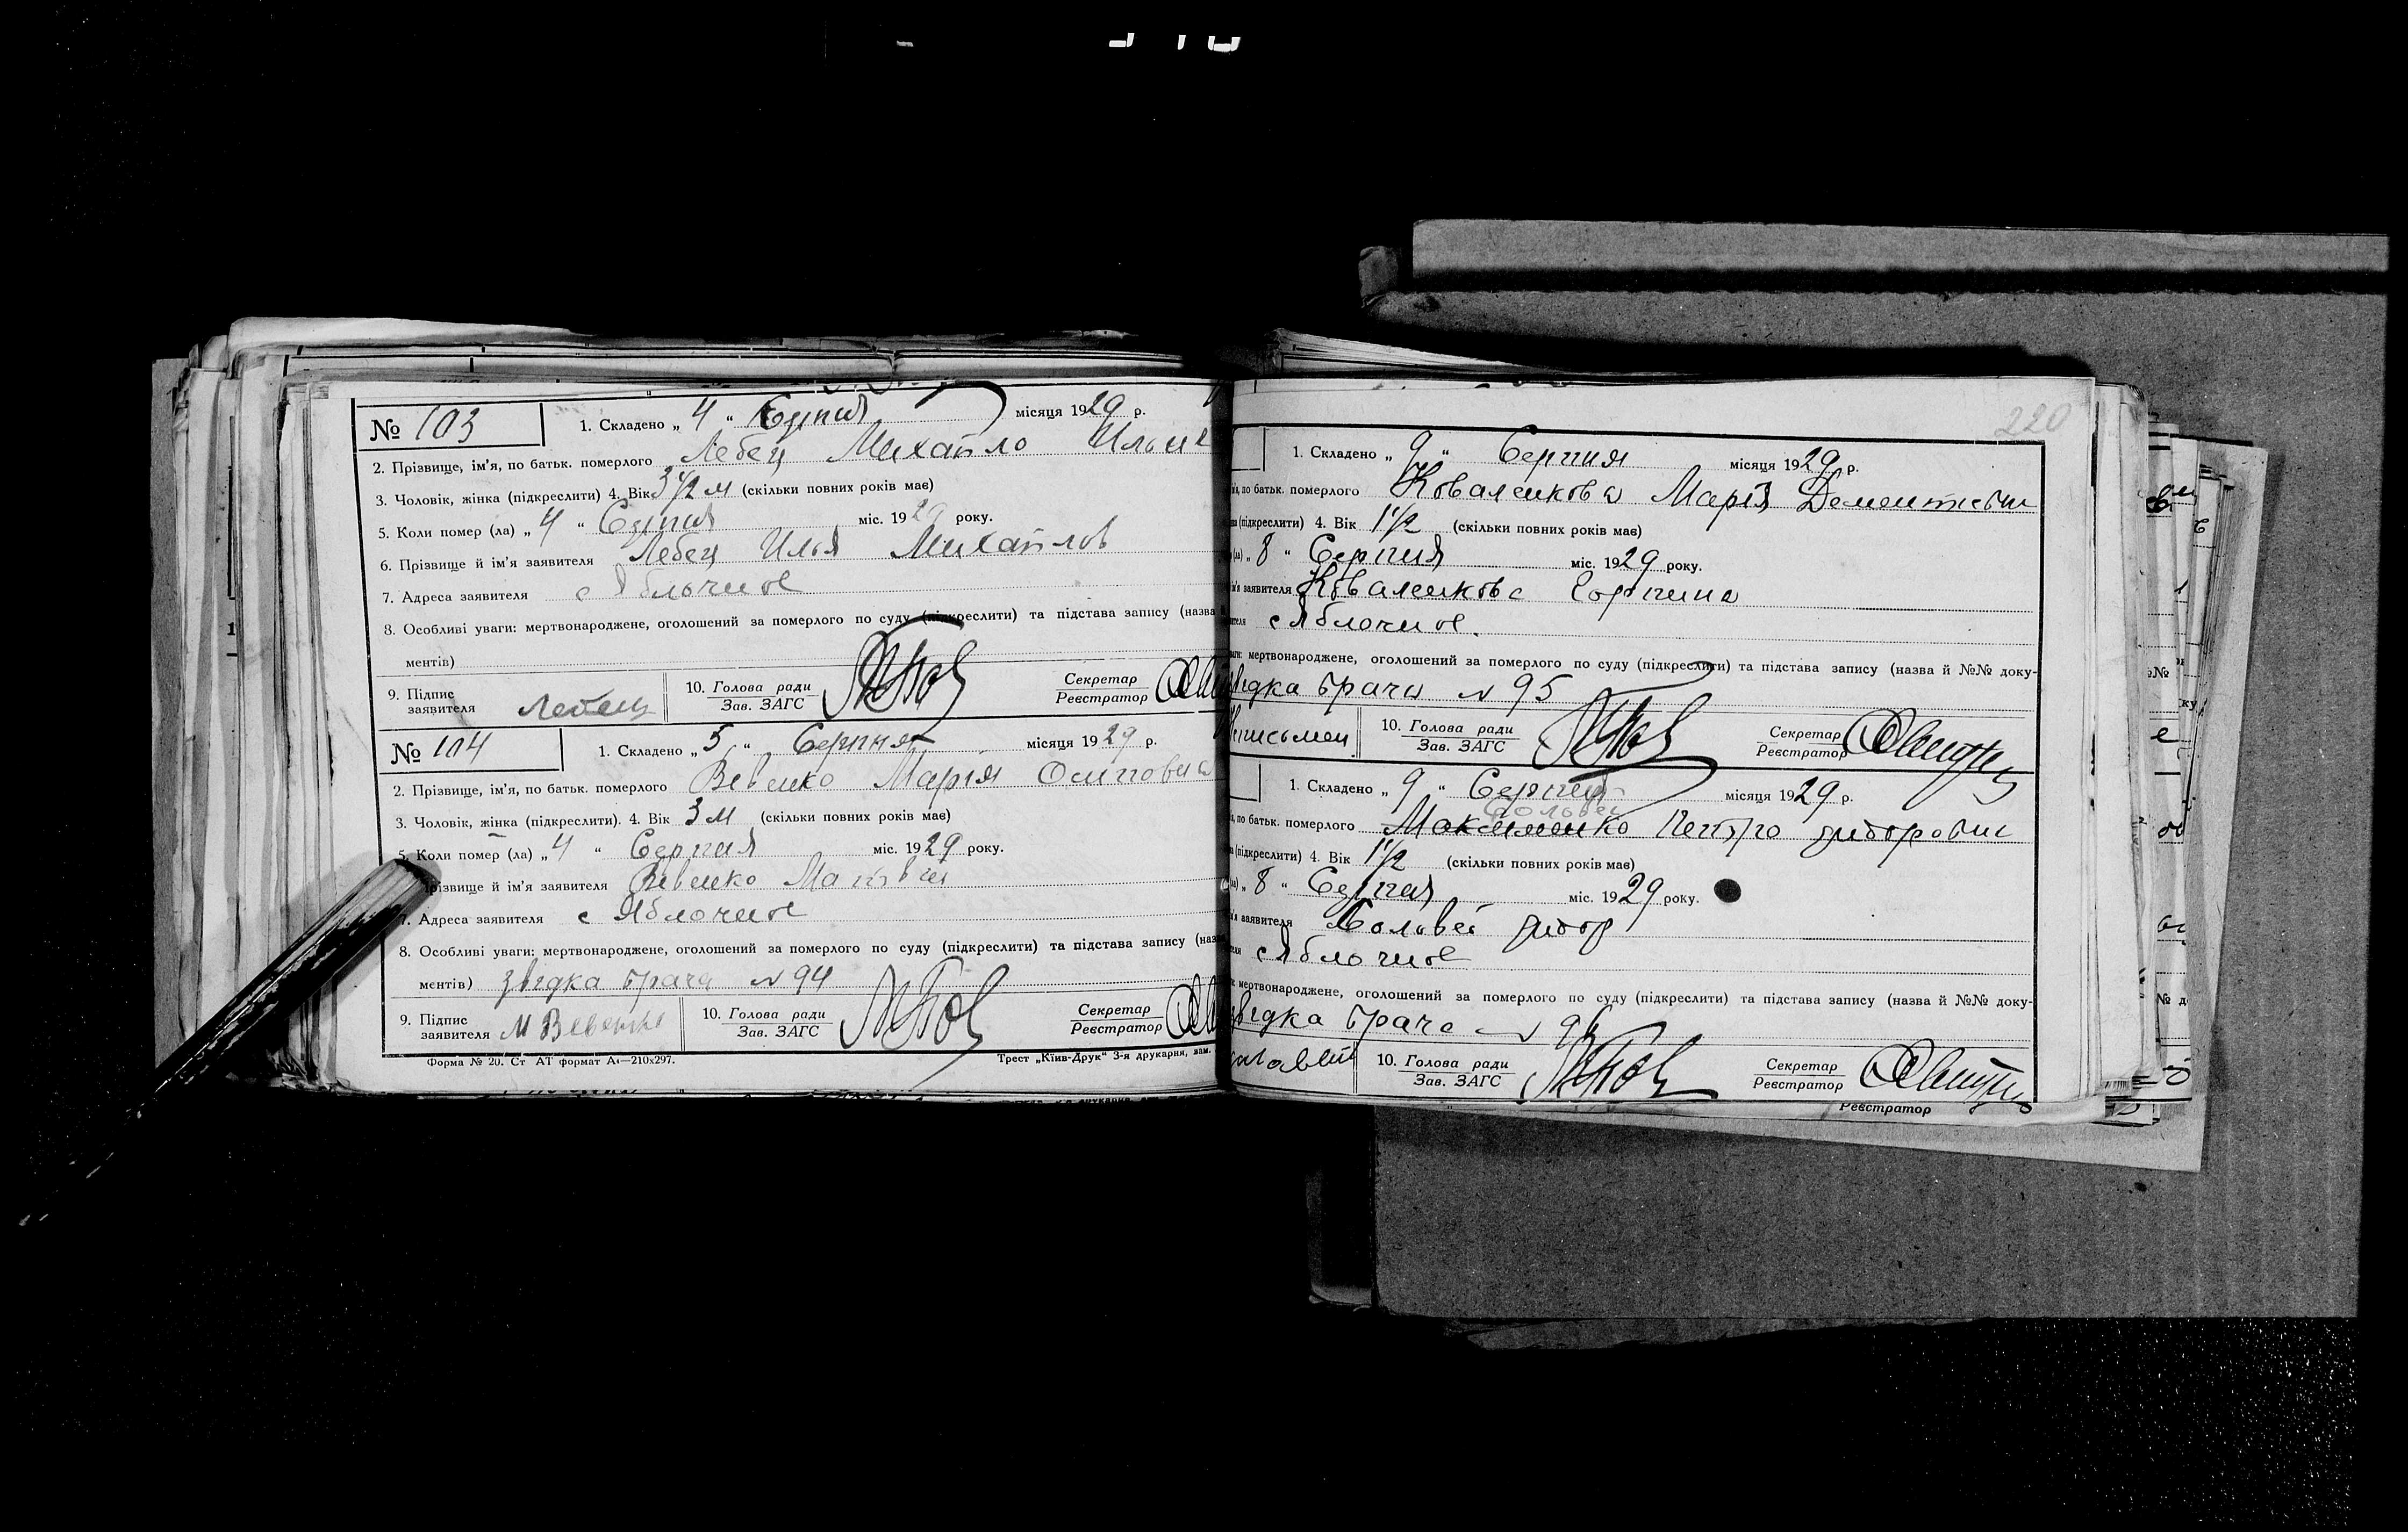 № 103 1. Складено „ 4 " Серпня місяця 1929 р.
2. Прізвище, ім'я, по батьк. померлого Лебец Михайло Ильич
3. Чоловік, жінка (підкреслити) 4. Вік 3 1/2 м (скільки повних років має)
5. Коли помер (ла) „ 4 " Серпня міс. 1929 року.
6. Прізвище й ім'я заявителя Лебец Илья Михайлов
7. Адреса заявителя с Яблочное
8. Особливі уваги: мертвонароджене, оголошений за померлого по суду (підкреслити) та підстава запису (назва
ментів)
9. Підпис заявителя Лебець 10. Голова ради Зав. ЗАГС Секретар Реєстратор
№ 104 1. Складено „ 5 " Серпня місяця 1929 р.
2. Прізвище, ім'я, по батьк. померлого Вевенко Марія Осиповна
3. Чоловік, жінка (підкреслити). 4. Вік 3 м (скільки повних років має)
5. Коли помер (ла) „ 4 " Серпня міс. 1929 року.
різвище й ім'я заявителя Вевенко Матвей
7. Адреса заявителя с Яблочное
8. Особливі уваги: мертвонароджене, оголошений за померлого по суду (підкреслити) та підстава запису (наз
ментів) звідка врача № 94
9. Підпис заявителя М Вевенко 10. Голова ради Зав. ЗАГС Секретар Реєстратор
Форма № 20. Ст АТ формат А4—210х297. Трест „Київ-Друк" 3-я друкарня, зам.
220
1. Складено „ 9 " Серпня місяця 1929 р.
по батьк. померлого Коваленкова Марія Дементьевн
(підкреслити) 4. Вік 1 1/2 (скільки повних років має)
„ 8 " Серпня міс. 1929 року.
заявителя Коваленкова Горпина
с Яблочное.
мертвонароджене, оголошений за померлого по суду (підкреслити) та підстава запису (назва й №№ доку-
звідка врача № 95
Неписьмен 10. Голова ради Зав. ЗАГС Секретар Реєстратор
1. Складено „ 9 " Серпня місяця 1929 р.
Соловей
по батьк. померлого Максименко Петро Сидорович
(підкреслити) 4. Вік 1 1/2 (скільки повних років має)
„ 8 " Серпня міс. 1929 року.
заявителя Соловей Сидор
с Яблочное
мертвонароджене, оголошений за померлого по суду (підкреслити) та підстава запису (назва й №№ доку-
звідка врача № 96
10. Голова ради Зав. ЗАГС Секретар Реєстратор
Реєстратор